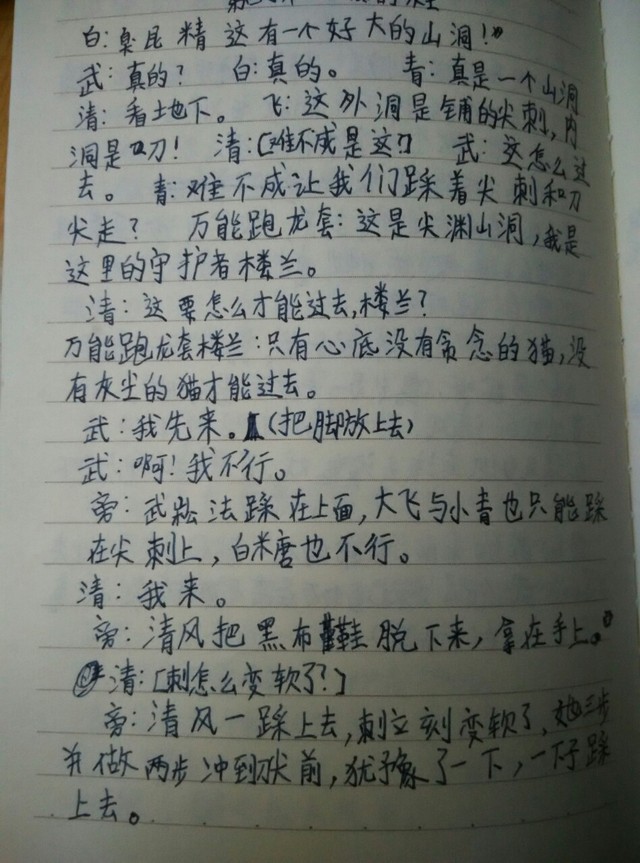 白：臭昆精这有一个好大的山洞！
武：真的？ 白：真的。 青：真是一个山洞
清：看地下。 飞：这外洞是铺的尖刺，内
洞是刀！ 清：[难不成是这？] 武：这怎么过
去。 青：难不成让我们踩着尖刺和刀
尖走？ 万能跑龙套：这是尖渊山洞，我是
这里的守护者楼兰。
清：这要怎么才能过去，楼兰？
万能跑龙套楼兰：只有心底没有贪念的猫，没
有灰尘的猫才能过去。
武：我先来。（把脚放上去）
武：啊！我不行。
旁：武崧法踩在上面，大飞与小青也只能踩
在尖刺上，白米唐也不行。
清：我来。
旁：清风把黑布鞋脱下来，拿在手上。
清：[刺怎么变软了？]
旁：清风一踩上去，刺立刻变软了，她三步
并做两步冲到 前，犹予象了一下，一下子踩
上去。